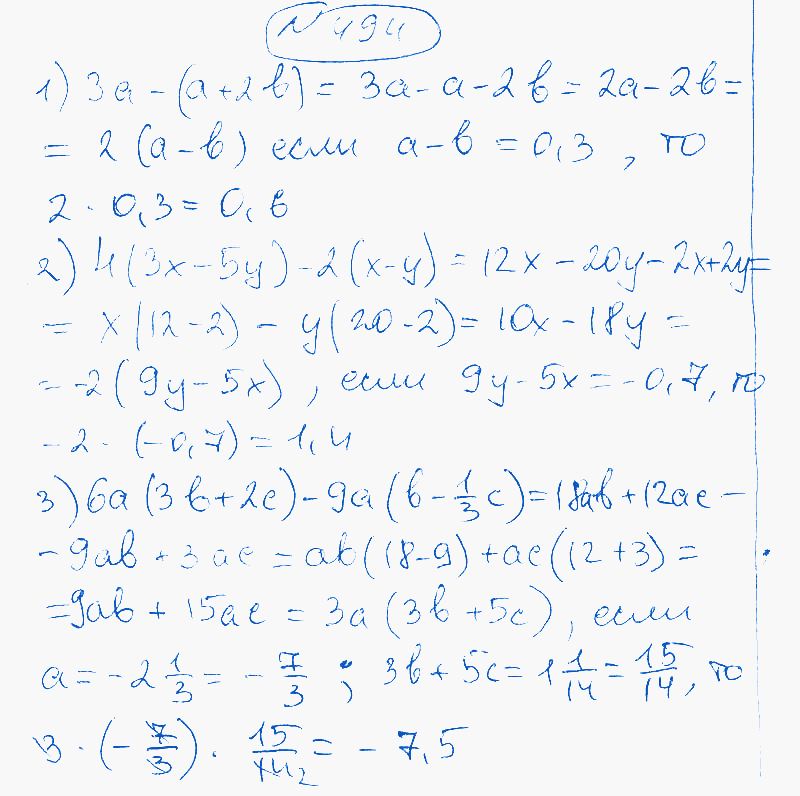 N 494
1) 3a - (a+2b) = 3a - a - 2b = 2a - 2b =
= 2 (a-b) если a-b = 0,3 , то
2 · 0,3 = 0,6
2) 4(3x-5y) - 2(x-y) = 12x - 20y - 2x + 2y =
= x(12-2) - y(20-2) = 10x - 18y =
= -2(9y-5x) , если 9y-5x = -0,7, то
-2 · (-0,7) = 1,4
3) 6a(3b+2c) - 9a(b - 1/3 c) = 18ab + 12ac -
- 9ab + 3ac = ab(18-9) + ac(12+3) =
= 9ab + 15ac = 3a(3b+5c), если
a = -2 1/3 = - 7/3 ; 3b+5c = 1 1/14 = 15/14, то
3 · (- 7/3) · 15/14 2 = - 7,5